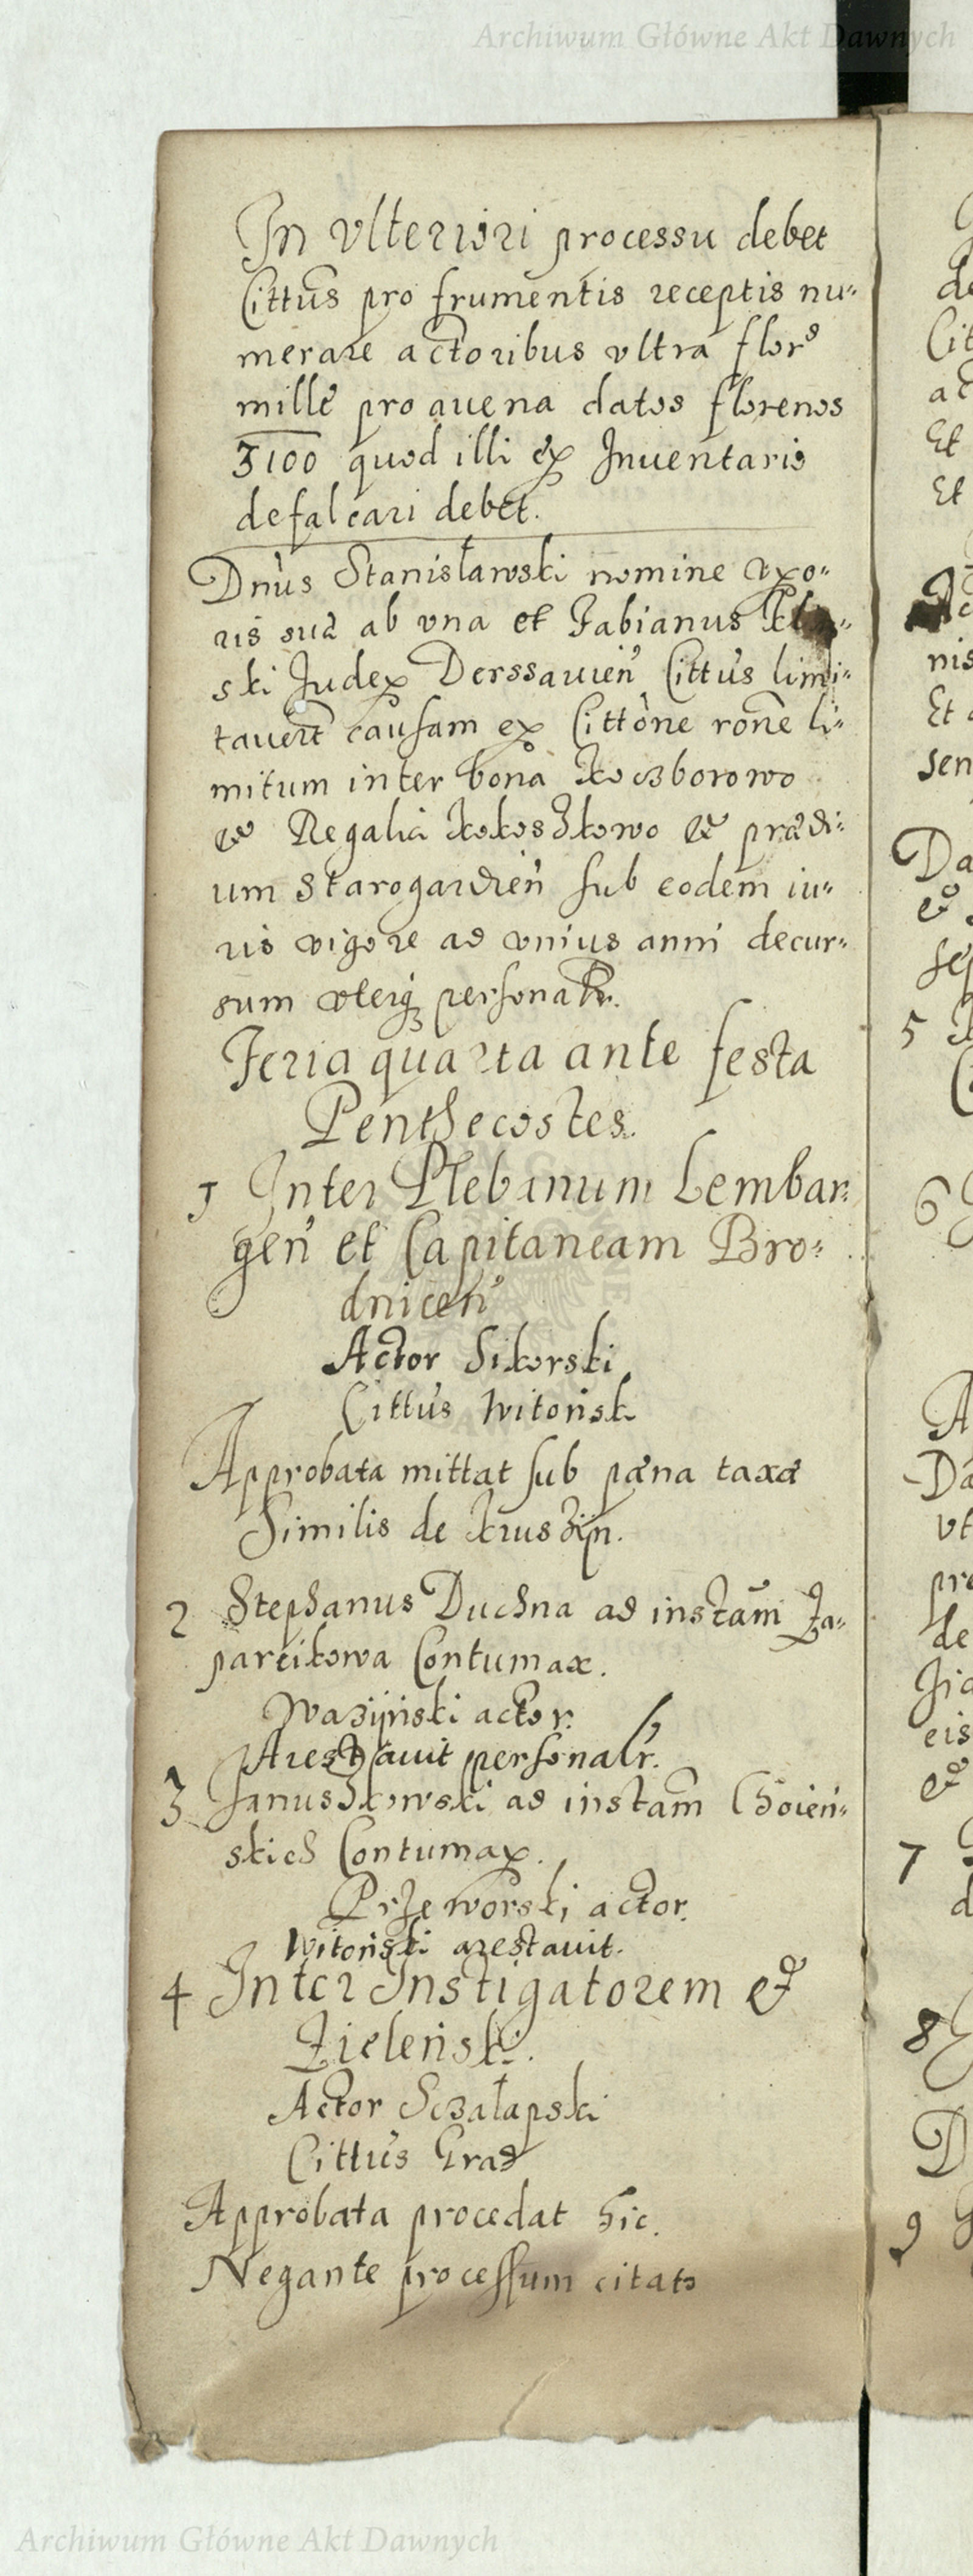 Archiwum Główne Akt Dawnych
In Vlteriori processu debet
Cittus pro frumentis receptis nu-
merare actoribus vltra flors
mille pro auena datos florenos
3100 quod illi ex Inuentario
defalcari debet.
Dnus Stanisławski nomine vxo-
ris suæ ab vna et Fabianus
ski Judex Derssauien Cittus limi-
tauert causam ex Cittone rone li-
mitum inter bona Koczborowo
et Regalia Kokoszkowo et prædi-
um Starogardien sub eodem iu-
ris vigore ad vnius anni decur-
sum vterq personalr.
Feria quarta ante festa
Penthecostes.
1 Inter Plebanum Lembar-
gen et Capitaneam Bro-
dnicen
Actor Sikorski
Cittus Witoński
Approbata mittat sub pæna taxæ
Similis de Kruszyn.
2 Stephanus Duchna ad instam Za-
pareikowa Contumax.
Wazyński actor.
Arestauit personalr.
3 Januszkowski ad instam Choień-
skich Contumax.
Przeworski actor.
Witoński arestauit.
4 Inter Instigatorem et
Zieleński.
Actor Sczałapski
Cittus Grad
Approbata procedat hic.
Negante processum citato
Archiwum Główne Akt Dawnych